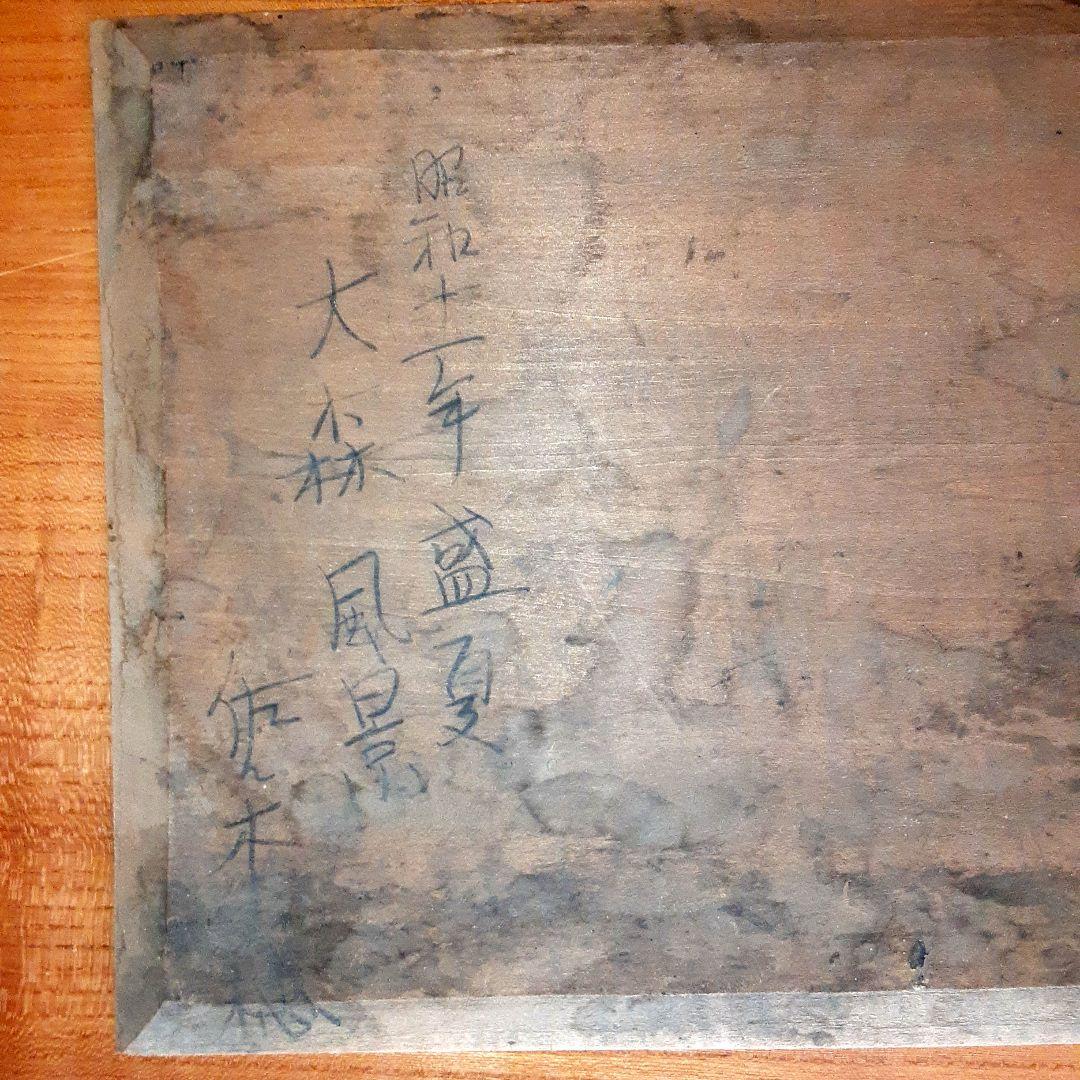 昭和十一年 盛夏
大森 風景
佐々木